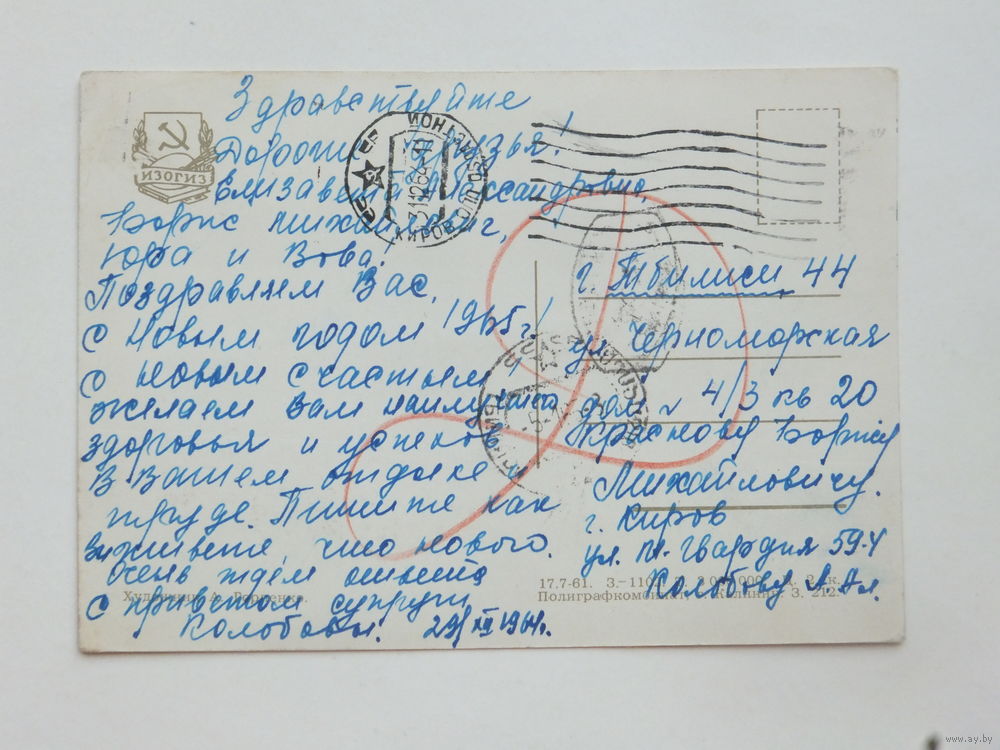 Здравствуйте
Дорогие друзья!
Елизавета Александровна,
Борис Михайлович,
Юра и Вова.
Поздравляем Вас,
с Новым годом 1965г!
с новым счастьем
желаем Вам наилучшего
здоровья и успехов
В Вашем отдыхе и
труде. Пишите как
Вы живете, что нового.
Очень ждём ответа
с приветом супруги
Колобовы. 29/XII 1964г.
г. Тбилиси 44
ул. Черноморская
дом № 4/3 кв 20
Краснову Борису
Михайловичу.
г. Киров
ул. Мл. Гвардия 59-4
Колобову А. Ал.
ИЗОГИЗ
17.7-61. З.-110
Полиграфкомбинат, г. Калинин З. 212.
Художник А.
31 12 64
КИРОВ
www.ay.by